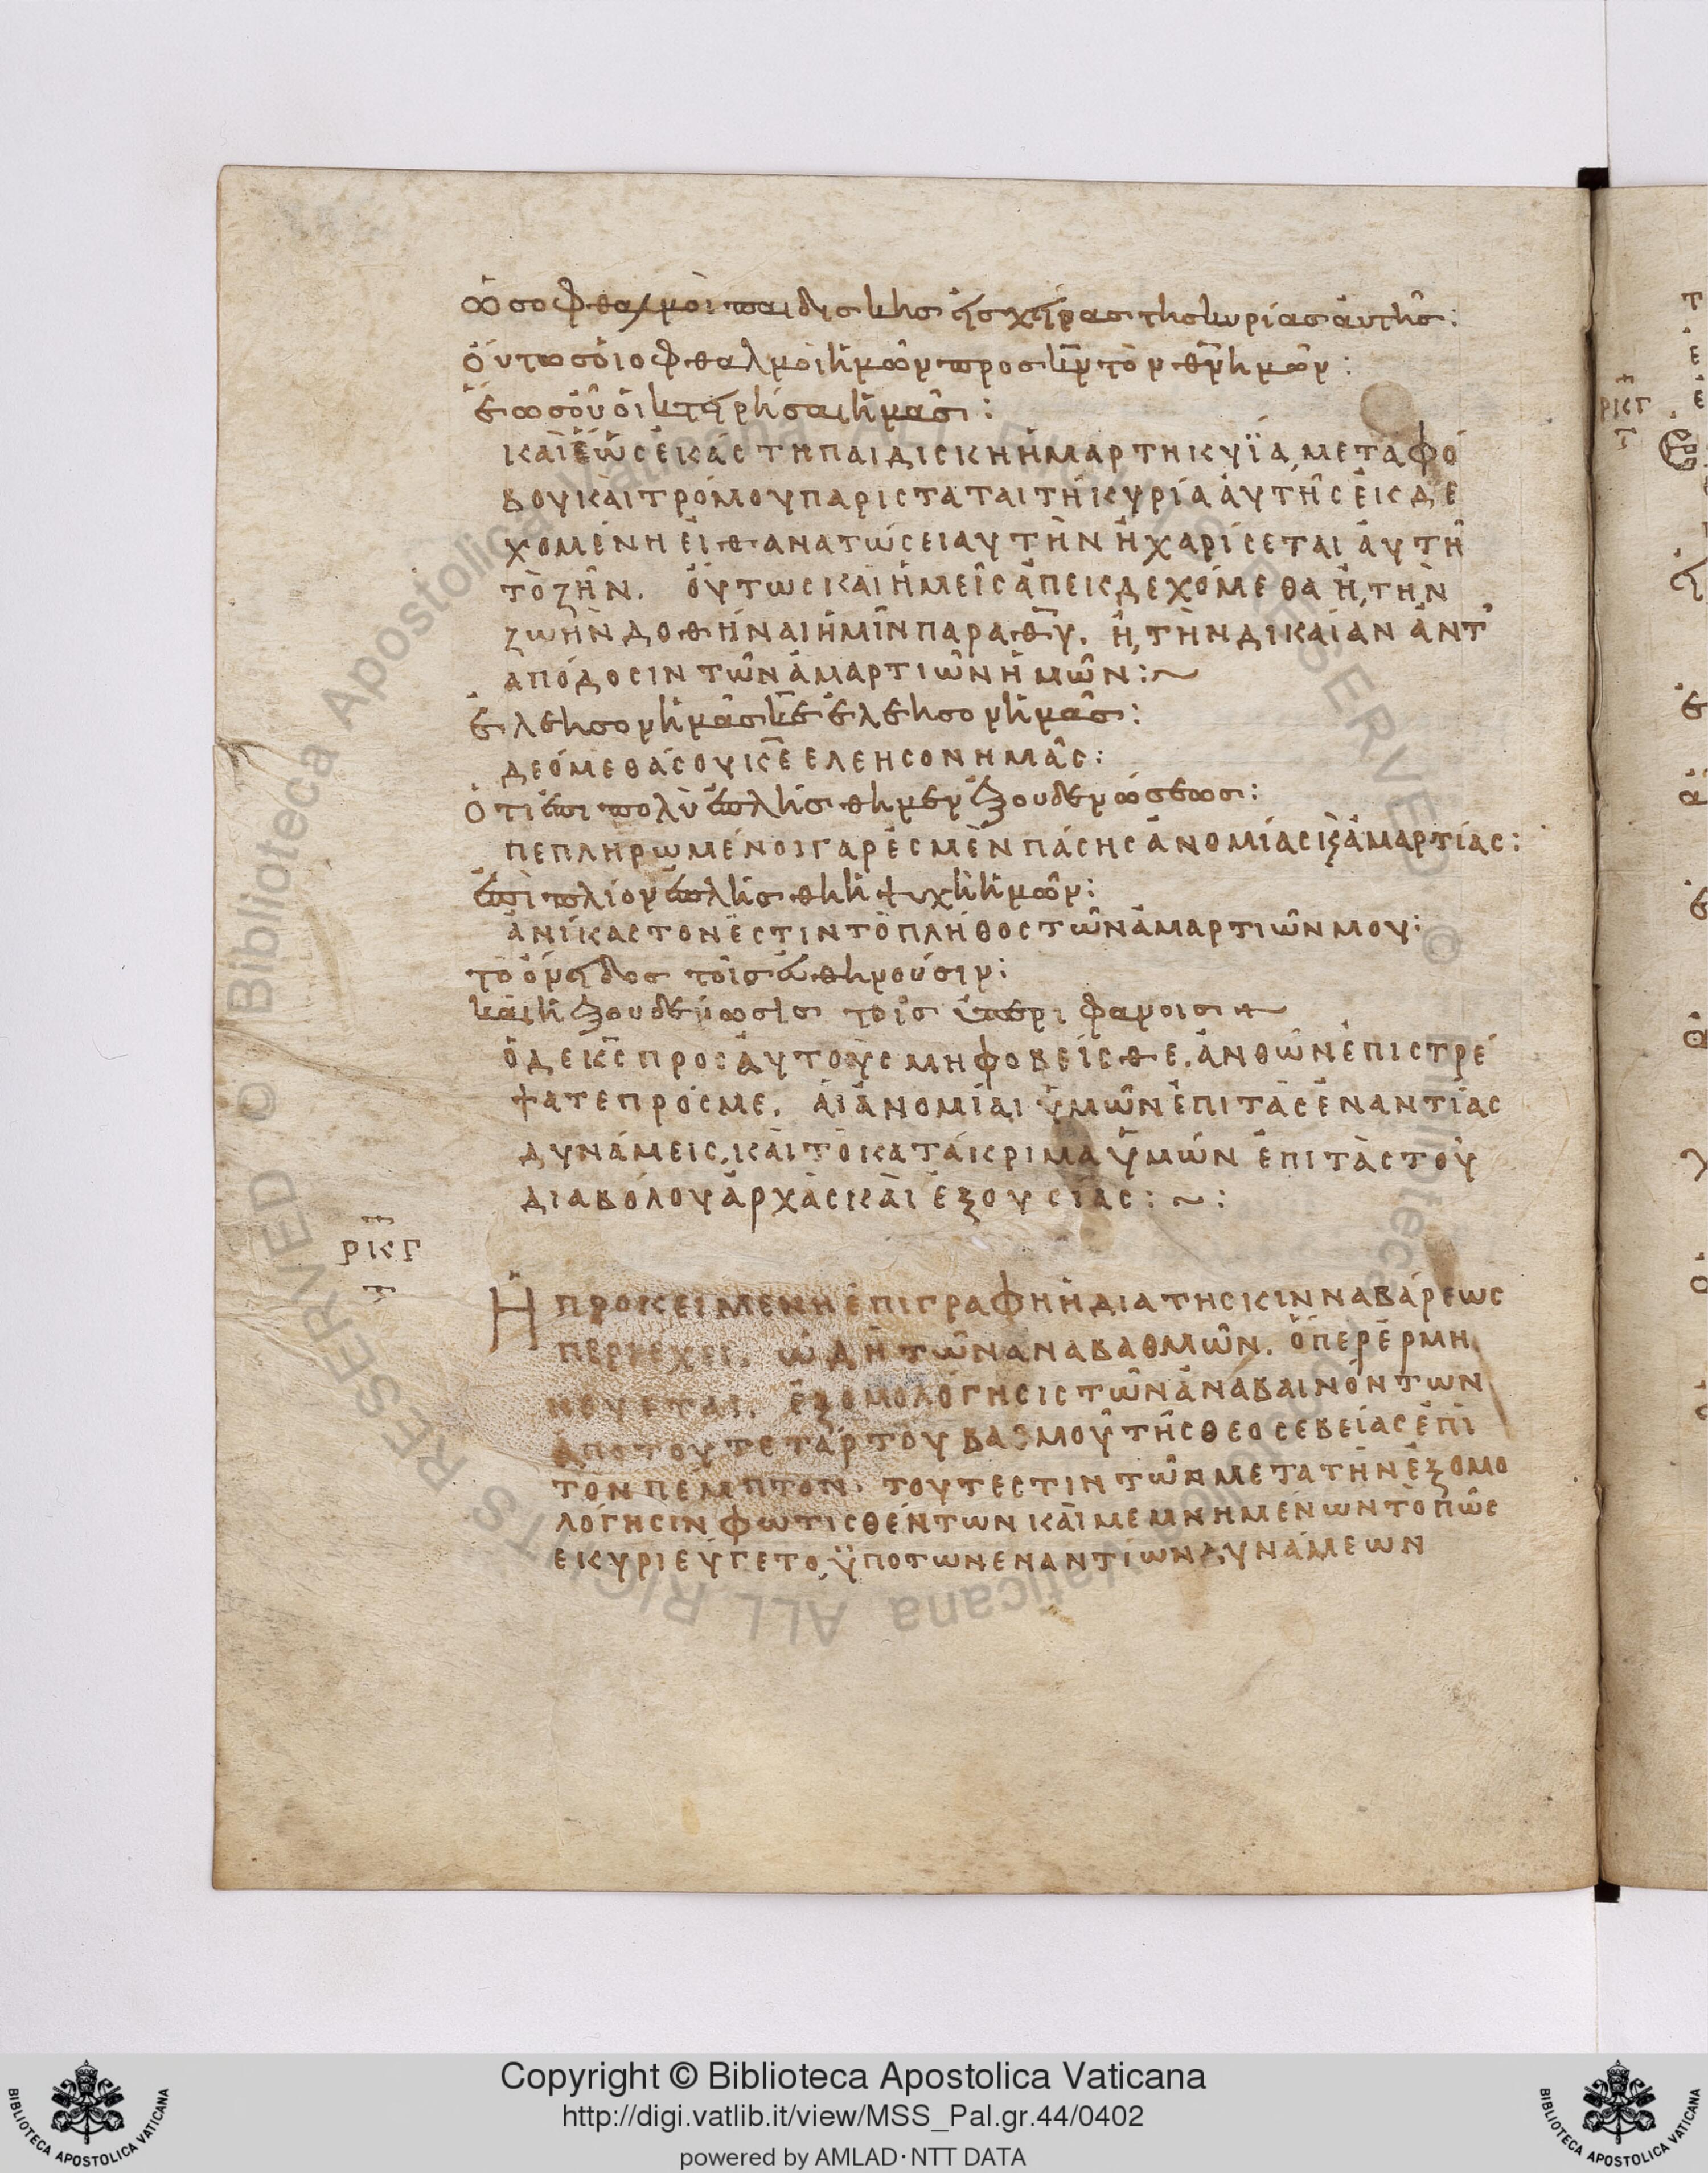 ὡσ οφθαλμοὶ παιδισκησ ἐισ χεῖρασ τησ κυρίασ ἀυτῆσ:
ὅυτωσ ὁι οφθαλμοὶ ἡμῶν προσ κ̅ν̅ τὸν θ̅ν̅ ἡμῶν:
ἕωσ ὁῦ ὀικτειρήσαι ἡμᾶσ:
ΚΑΙ ἘΩ̂Σ ἙΚΆΣΤΗ ΠΑΙΔΙΣΚΗ ἩΜΑΡΤΗΚΥΪ́Α, ΜΕΤΑ ΦΌ
ΒΟΥ ΚΑῚ ΤΡΌΜΟΥ ΠΑΡΙΣΤΑΤΑΙ ΤΗ ΚΥΡΊΑ ἈΥΤΗ͂Σ ἘΙΣΔΕ
ΧΟΜΕΝΗ ἘΙ ΘΑΝΑΤΏΣΕΙ ΑΥΤῊΝ Ἢ ΧΑΡΊΣΕΤΑΙ ἈΥΤΗ͂
ΤῸ ΖΗ͂Ν. ὍΥΤΩΣ ΚΑΙ ἩΜΕΙ͂Σ ἈΠΕΙΣΔΕΧΌΜΕΘΑ Ἢ, ΤῊΝ
ΖΩῊΝ ΔΟΘΗ͂ΝΑΙ ἩΜΙ͂Ν ΠΑΡΑ Θ̅Υ̅. Ἢ, ΤῊΝ ΔΙΚΑΊΑΝ ἈΝΤ
ΑΠΌΔΟΣΙΝ ΤΩ͂Ν ἉΜΑΡΤΙΩ͂Ν ἩΜΩ͂Ν:~
ἐλεησον ἡμᾶσ κ̅ε̅ ἐλεησον ἡμᾶσ:
ΔΕΌΜΕΘΆ ΣΟΥ Κ̅Ε̅ ΕΛΕΗΣΟΝ ΗΜΑ͂Σ:
ὅτι ἐπι πολὺ ἐπλήσθημεν ἐξουδενώσεωσ:
ΠΕΠΛΗΡΩΜΈΝΟΙ ΓΑΡ ἘΣΜῈΝ ΠΆΣΗΣ ἈΝΟΜΊΑΣ Ϗ ἉΜΑΡΤΊΑΣ:
ἐπὶ πλίον ἐπλήσθη ἡ ψυχὴ ἡμῶν:
ἈΝΊΚΑΣΤΟΝ ἘΣΤΙΝ ΤῸ ΠΛΗ͂ΘΟΣ ΤΩ͂Ν ἉΜΑΡΤΙΩ͂Ν ΜΟΥ:
τὸ ὄνειδοσ τοῖσ ἐυθηνούσιν:
καὶ ἡ ἐξουδένωσισ τοῖσ ὑπερι φανοισ +
Ὁ ΔΕ Κ̅Σ̅ ΠΡΟΣ ἈΥΤΟῪΣ ΜΗ ΦΟΒΕΊΣΘΕ. ἈΝΘΩ͂Ν ἘΠΙΣΤΡΈ
ΨΑΤΕ ΠΡΌΣ ΜΕ. ἉΙ ἈΝΟΜΊΑΙ ὙΜΩ͂Ν ἘΠΙ ΤᾺΣ ἘΝΑΝΤΊΑΣ
ΔΥΝΆΜΕΙΣ, ΚΑῚ ΤῸ ΚΑΤΆΚΡΙΜΑ ὙΜΏΝ ἘΠΙ ΤᾺΣ ΤΟΥ͂
ΔΙΑΒΌΛΟΥ ἈΡΧᾺΣ ΚΑῚ ἘΞΟΥΣΊΑΣ:~:
ΡΚΓ
Ἡ ΠΡΟΚΕΙΜΕΝΗ ἘΠΙΓΡΑΦΗ Ἡ ΔΙΑ ΤΗΣ ΚΙΝΝΑΒΆΡΕΩΣ
ΠΕΡΙΕΧΕΙ. ὨΔῊ ΤΩ͂Ν ΑΝΑΒΑΘΜΩ͂Ν. ὍΠΕΡ ἙΡΜΗ
ΝΕΥΕΤΑΙ. ἘΞΟΜΟΛΌΓΗΣΙΣ ΤΩ͂Ν ἈΝΑΒΑΙΝΌΝΤΩΝ
ΑΠΟ ΤΟΥ ΤΕΤΆΡΤΟΥ ΒΑΘΜΟΥ͂ ΤΗ͂Σ ΘΕΟΣΕΒΕΊΑΣ ἘΠῚ
ΤΟΝ ΠΕΜΠΤΟΝ. ΤΟΥΤΕΣΤΙΝ ΤΩ͂Ν ΜΕΤΑ ΤῊΝ ἘΞΟΜΟ
ΛΌΓΗΣΙΝ ΦΩΤΙΣΘΈΝΤΩΝ ΚΑῚ ΜΕΜΝΗΜΈΝΩΝ ΤῸ ΠΩ͂Σ
ΕΚΥΡΙΕΎΓΕΤΟ, ὙΠΟ ΤΩΝ ΕΝΑΝΤΊΩΝ ΔΥΝΆΜΕΩΝ
ΡΚΓ
Copyright © Biblioteca Apostolica Vaticana
http://digi.vatlib.it/view/MSS_Pal.gr.44/0402
powered by AMLAD·NTT DATA
BIBLIOTECA APOSTOLICA VATICANA
BIBLIOTECA APOSTOLICA VATICANA